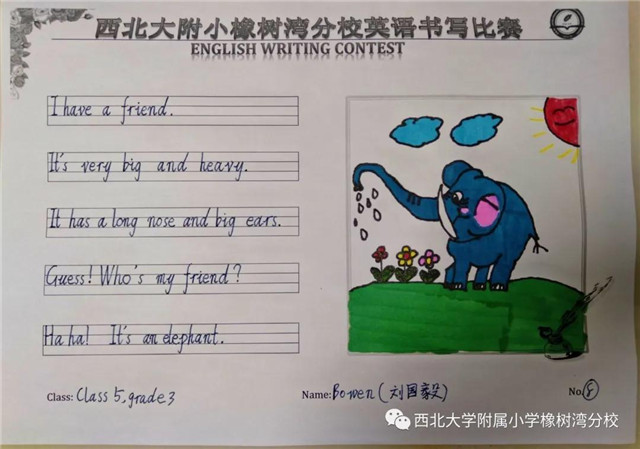 西北大附小橡树湾分校英语书写比赛
ENGLISH WRITING CONTEST
I have a friend.
It's very big and heavy.
It has a long nose and big ears.
Guess! Who's my friend?
Ha ha! It's an elephant.
Class: Class 5, grade 3
Name: Bowen (刘国毅)
No. 8
西北大学附属小学橡树湾分校